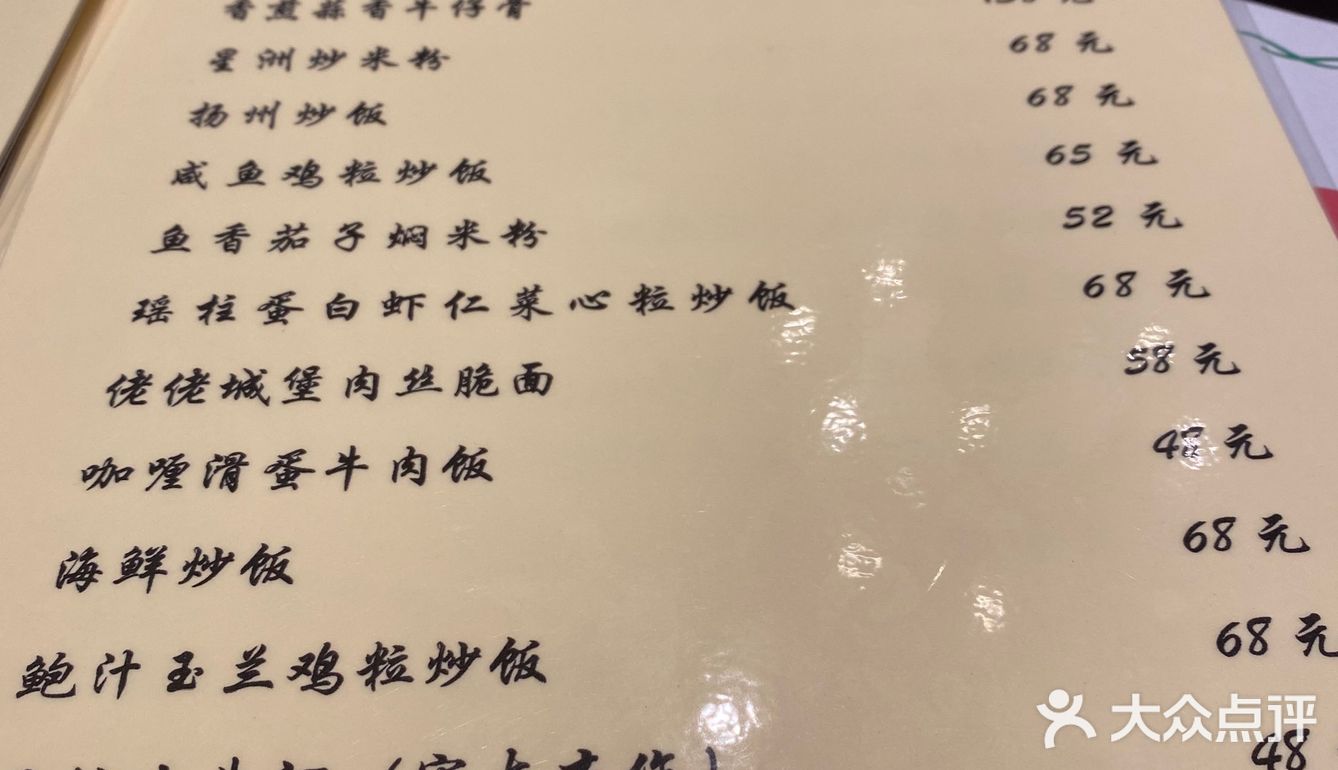 香煎蒜香牛仔骨 元
星洲炒米粉 68 元
扬州炒饭 68 元
咸鱼鸡粒炒饭 65 元
鱼香茄子焖米粉 52 元
瑶柱蛋白虾仁菜心粒炒饭 68 元
佬佬城堡肉丝脆面 58 元
咖喱滑蛋牛肉饭 48 元
海鲜炒饭 68 元
鲍汁玉兰鸡粒炒饭 68 元
48
大众点评